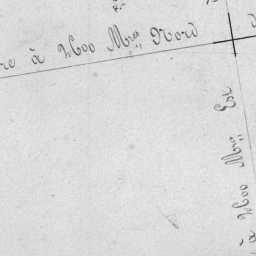 à 2600 Mres Nord
à 2600 Mres Est